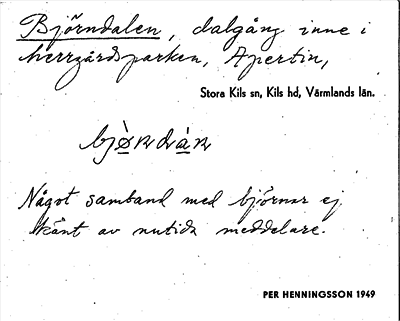 Björndalen, dalgång inne i
herrgårdsparken, Apertin,
Stora Kils sn, Kils hd, Värmlands län.
Något samband med björnar ej
känt av nutida meddelare.
PER HENNINGSSON 1949